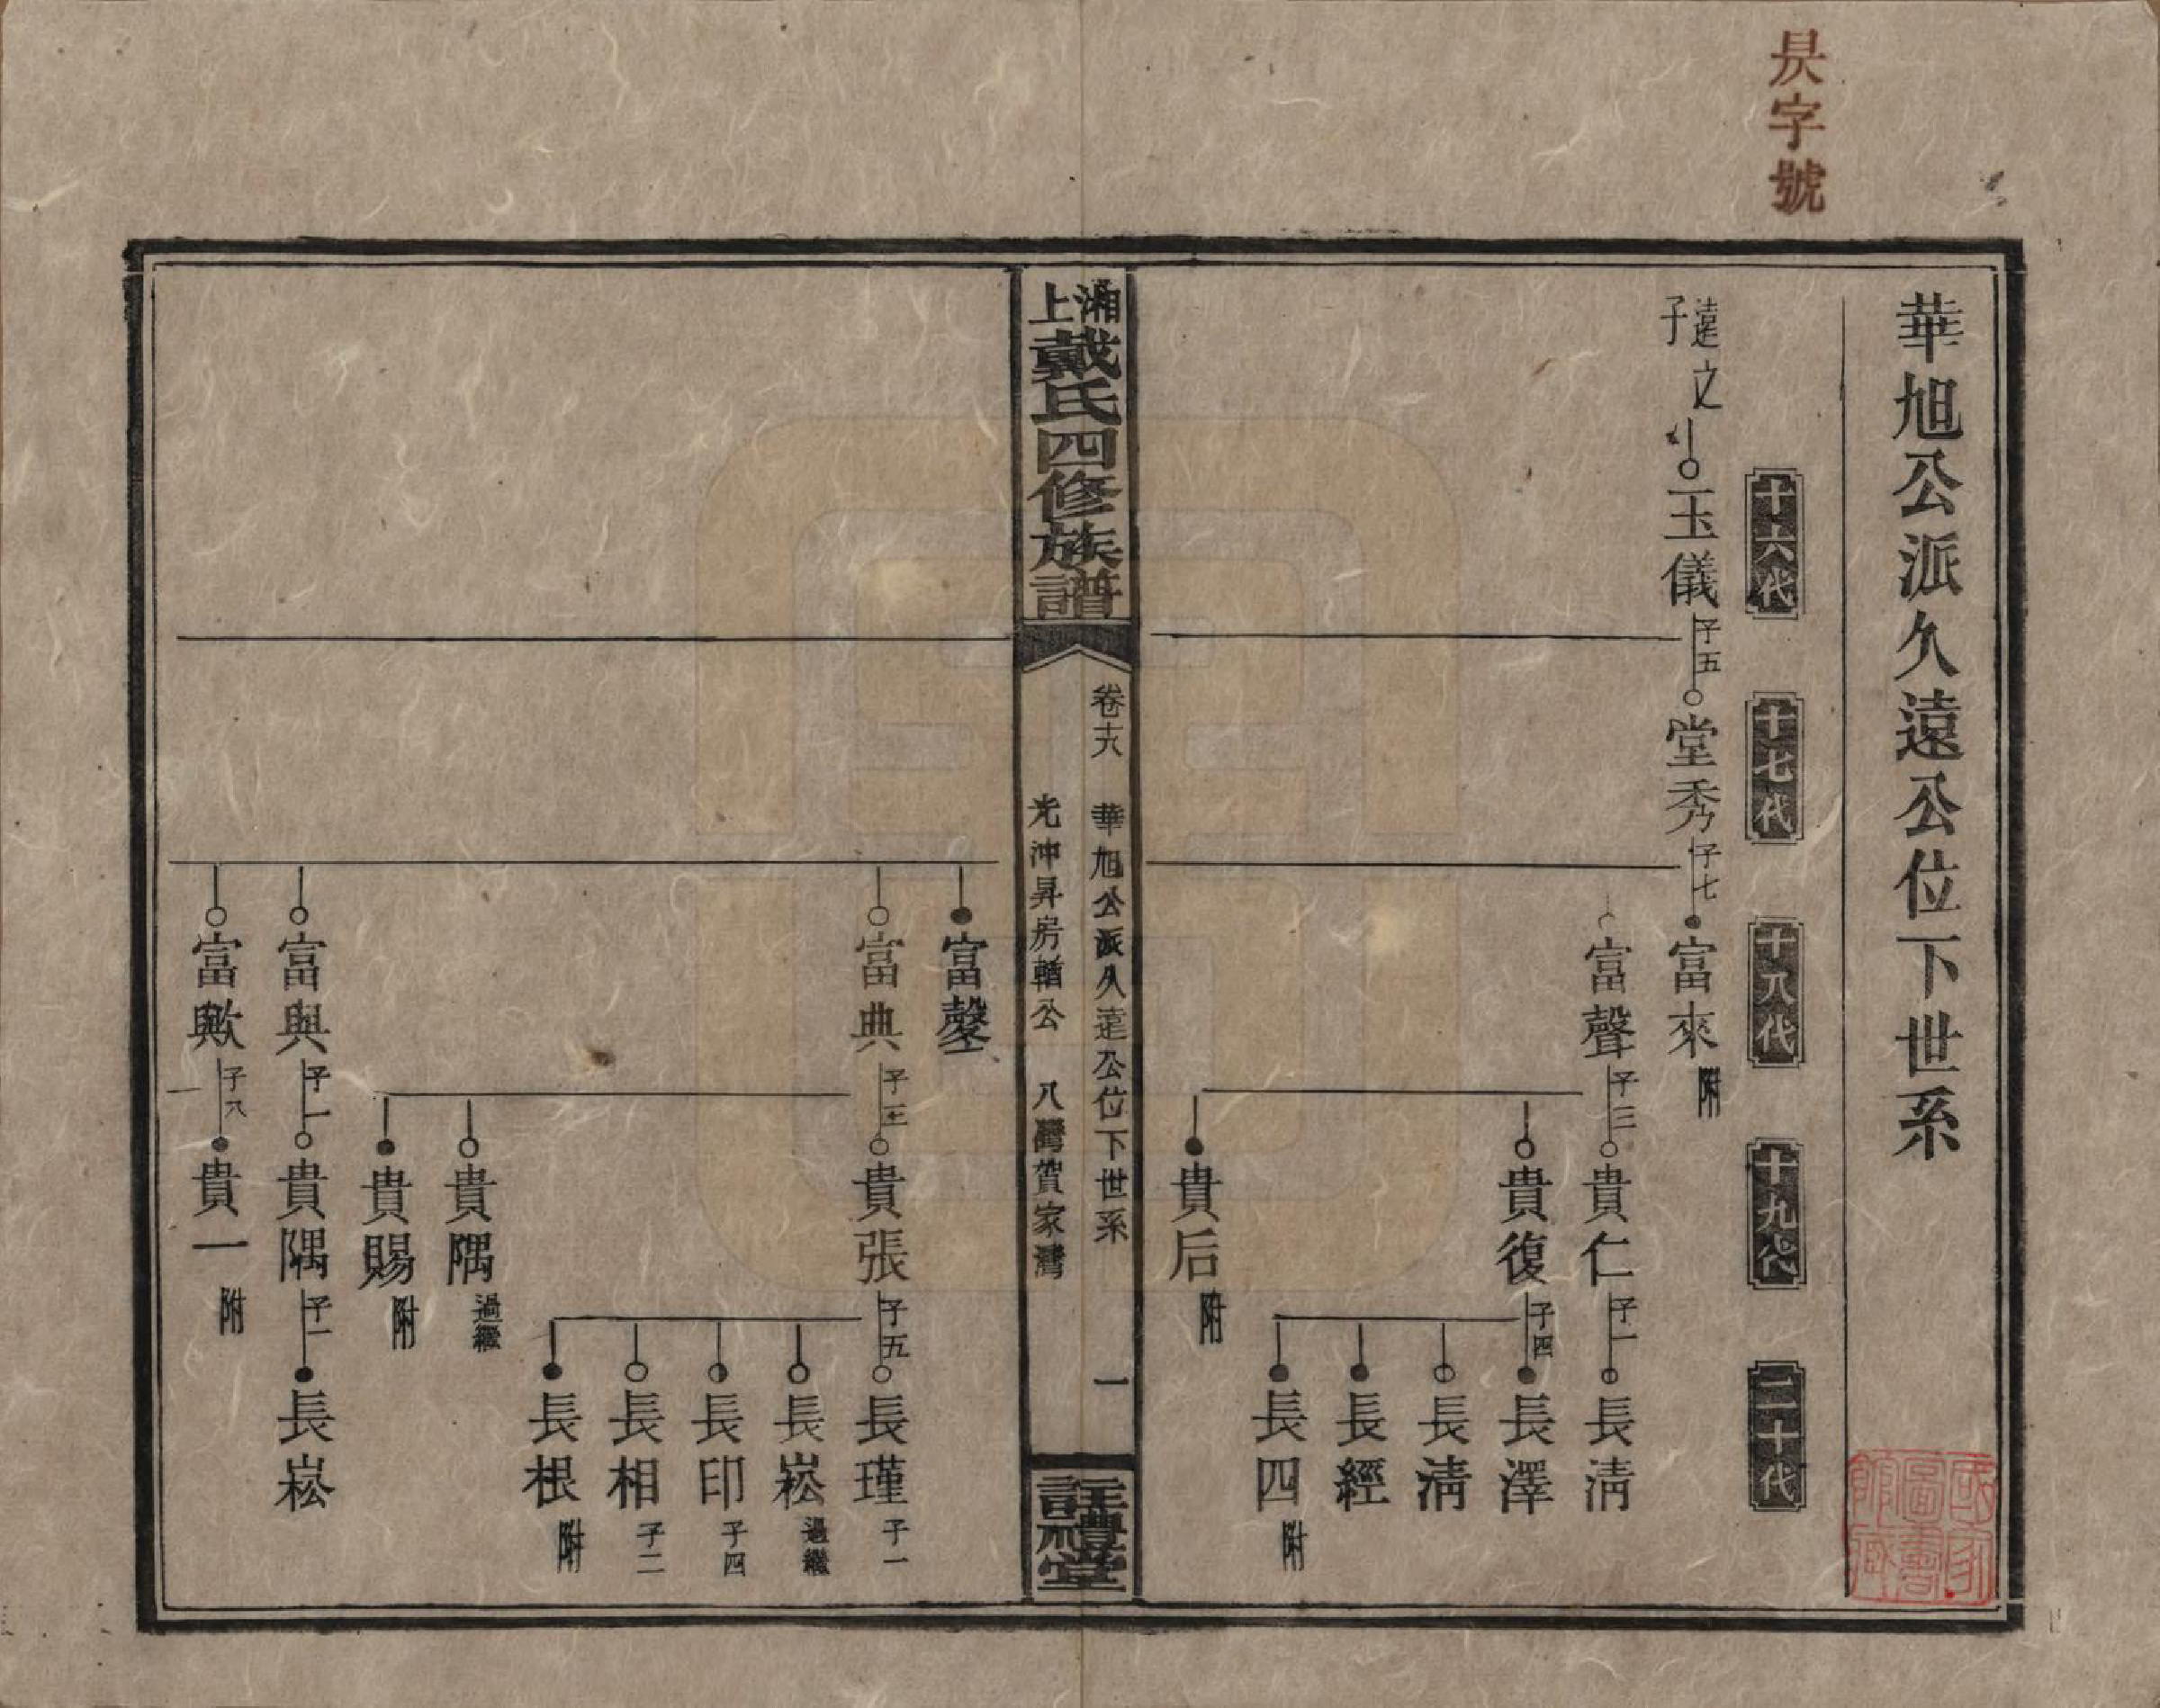 昃字號
華旭公派久遠公位下世系
十六代
十七代
十八代
十九代
二十代
遠文子
玉儀 子五
堂秀 子七
富來 附
富聲 子三
貴仁 子一
長淸
貴復 子四
長澤
長淸
長經
長四 附
貴后 附
湘上戴氏四修族譜
卷十六 華旭公派久遠公位下世系 一
光沖昇房輶公 八灣賀家灣
註禮堂
富鏧
富典 子三
貴張 子五
長瑾 子一
長崧 過繼
長印 子四
長相 子二
長根 附
貴隅 過繼
貴賜 附
富與 子一
貴隅 子一
長崧
富歟 子八
貴一 附
國家圖書館藏